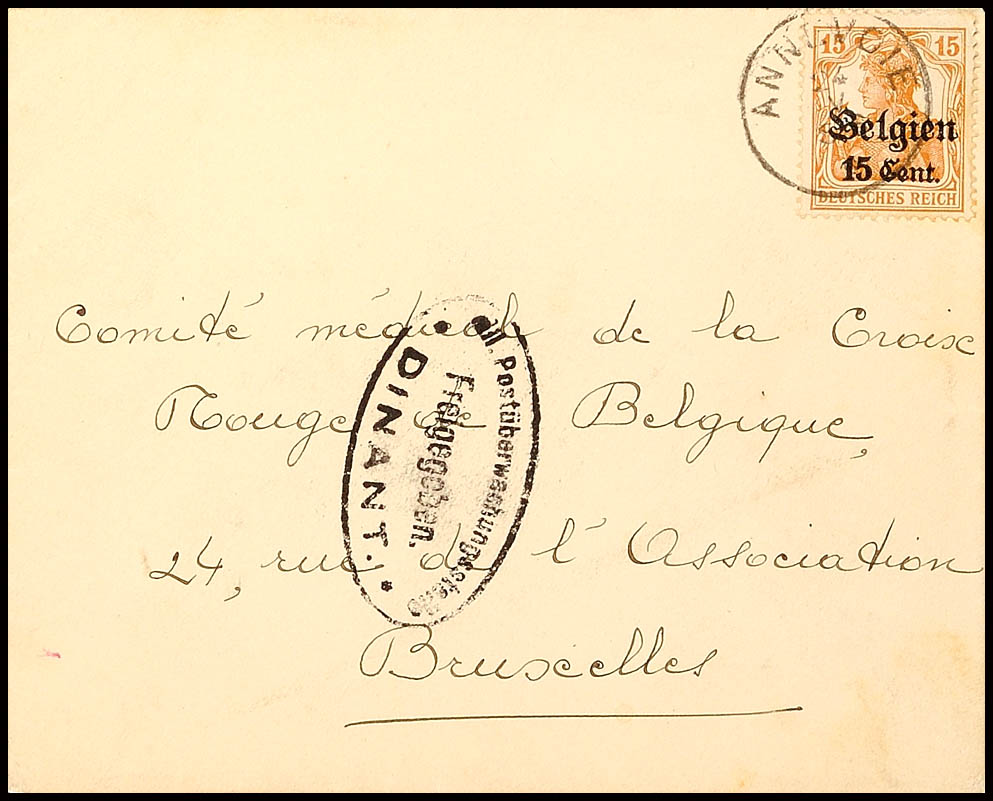 ANNEVOIE
15 15
Belgien
15 Cent.
DEUTSCHES REICH
Comité médical de la Croix
Rouge de Belgique,
24, rue de l'Association
Bruxelles
Postüberwachungsstelle
Freigegeben.
DINANT. *